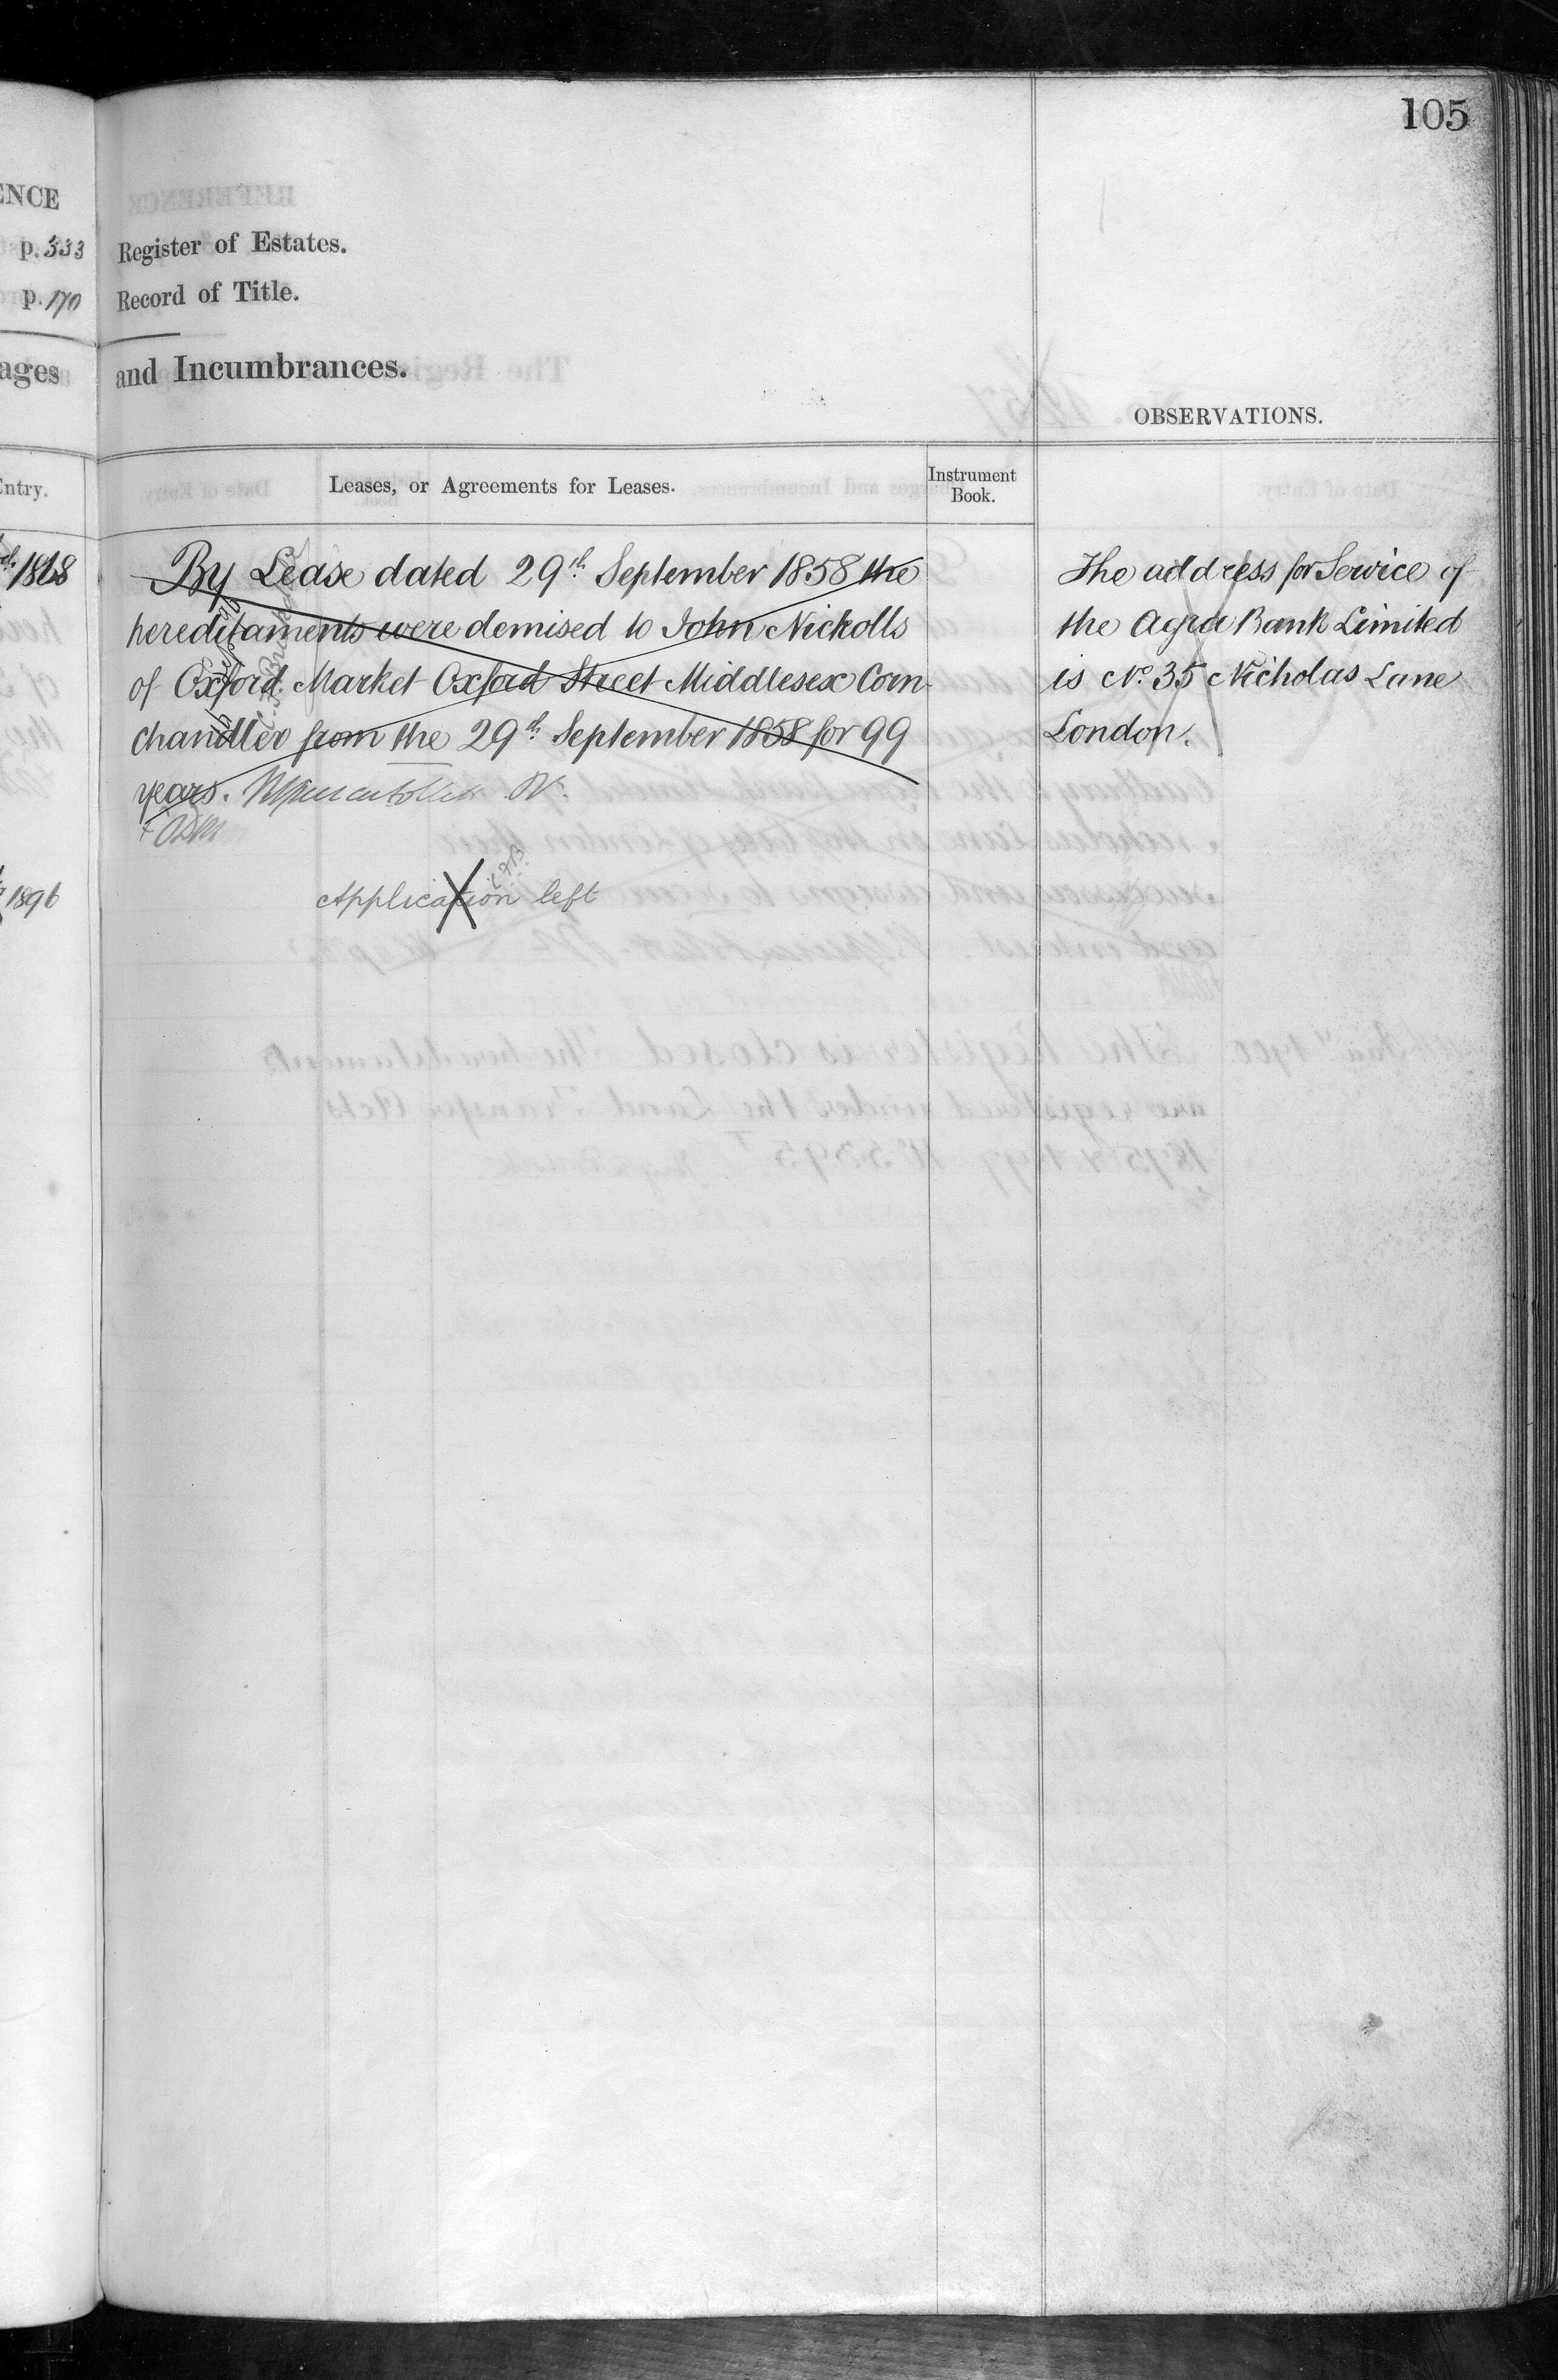 105
ENCE
p. 333 Register of Estates.
p. 170 Record of Title.
ages and Incumbrances.
OBSERVATIONS.
Entry.
Leases, or Agreements for Leases.
Instrument
Book.
1868
By Lease dated 29th September 1858 the
hereditaments were demised to John Nickolls
of Oxford Market Oxford Street Middlesex Corn
chandler from the 29th September 1858 for 99
years.
1896
Application left
The address for Service of
the Agra Bank Limited
is No. 35 Nicholas Lane
London.